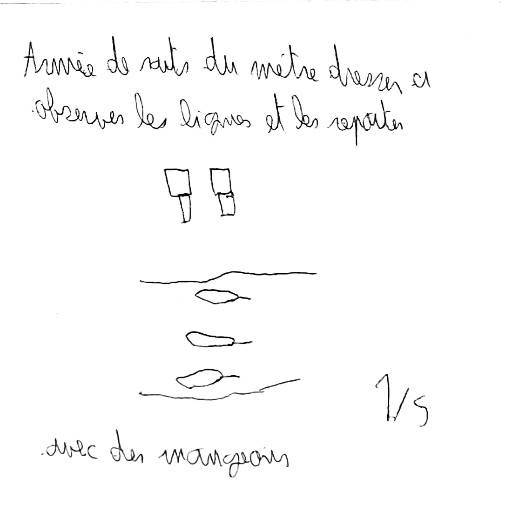 Armée de rats du mètre dresser a
observer les lignes et les reporter
1/5
avec des mangeoirs